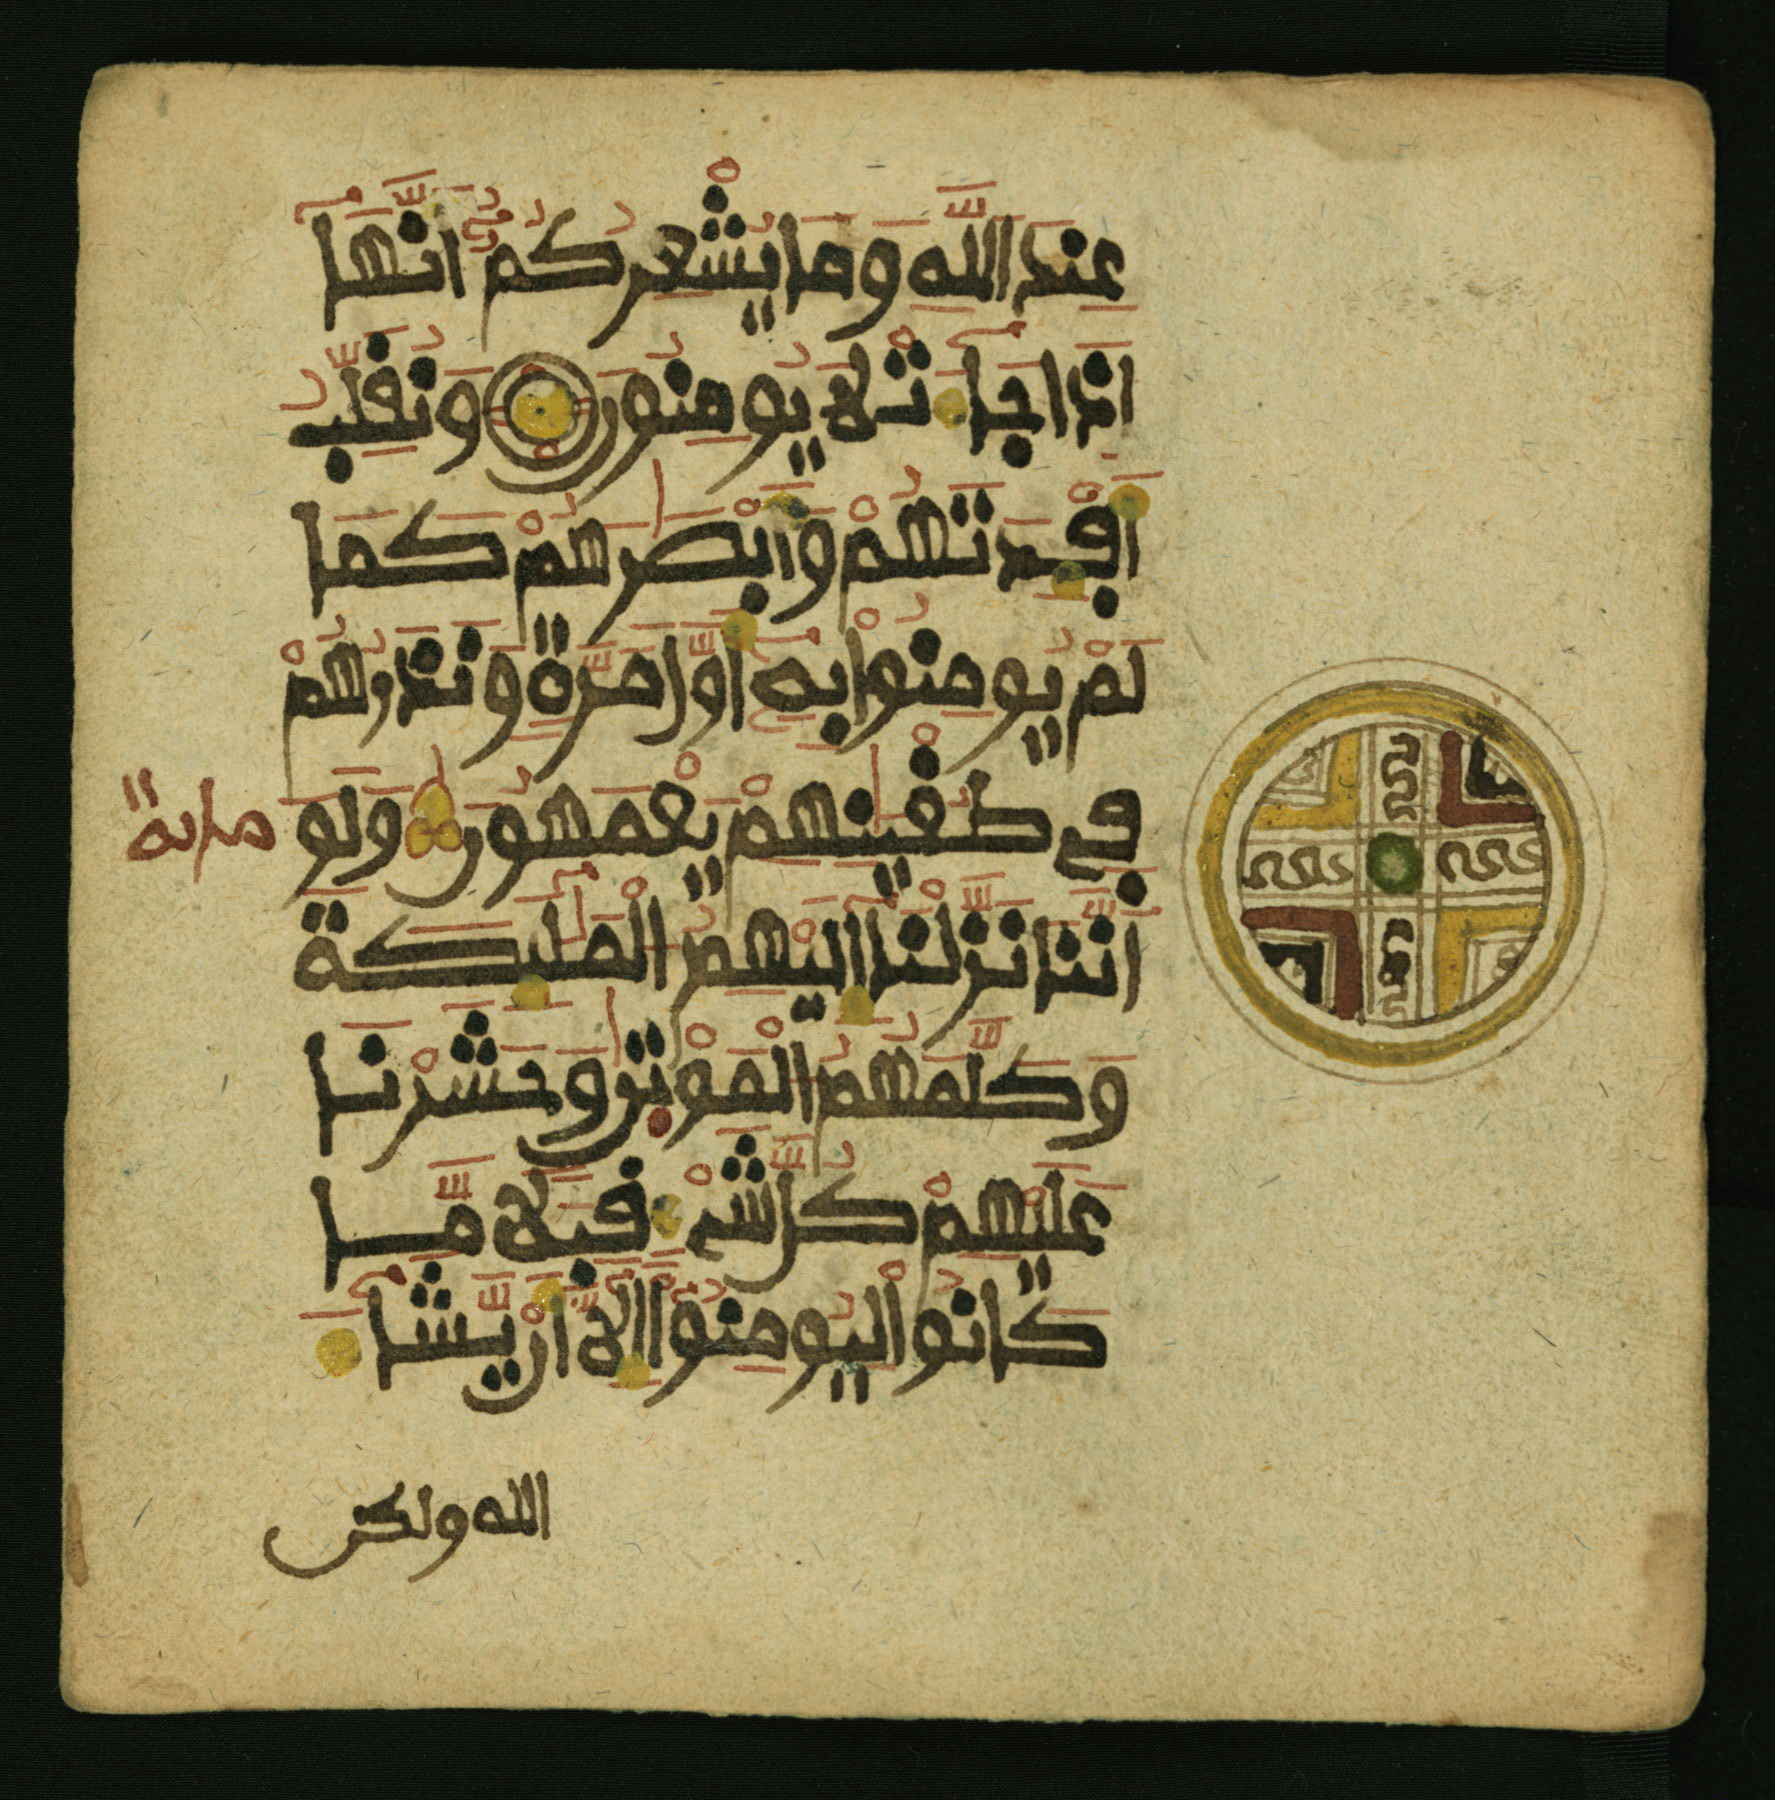 عِندَ اللَّهِ وَمَا يُشْعِرُكُمُ أَنَّهَا
إِذَا جَاءَتْ لَا يُومِنُونَ وَنُقَلِّبُ
أَفْـِٔدَتَهُمْ وَأَبْصَٰرَهُمْ كَمَا
لَمْ يُومِنُوا بِهِ أَوَّلَ مَرَّةٍ وَنَذَرُهُمْ
فِي طُغْيَٰنِهِمْ يَعْمَهُونَ وَلَوَ
مايه
أَنَّنَا نَزَّلْنَا إِلَيْهِمُ الْمَلَٰئِكَةَ
وَكَلَّمَهُمُ الْمَوْتَىٰ وَحَشَرْنَا
عَلَيْهِمْ كُلَّ شَيْءٍ قِبَلًا مَّا
كَانُوا لِيُومِنُوا إِلَّا أَنْ يَّشَاءَ
الله ولكن